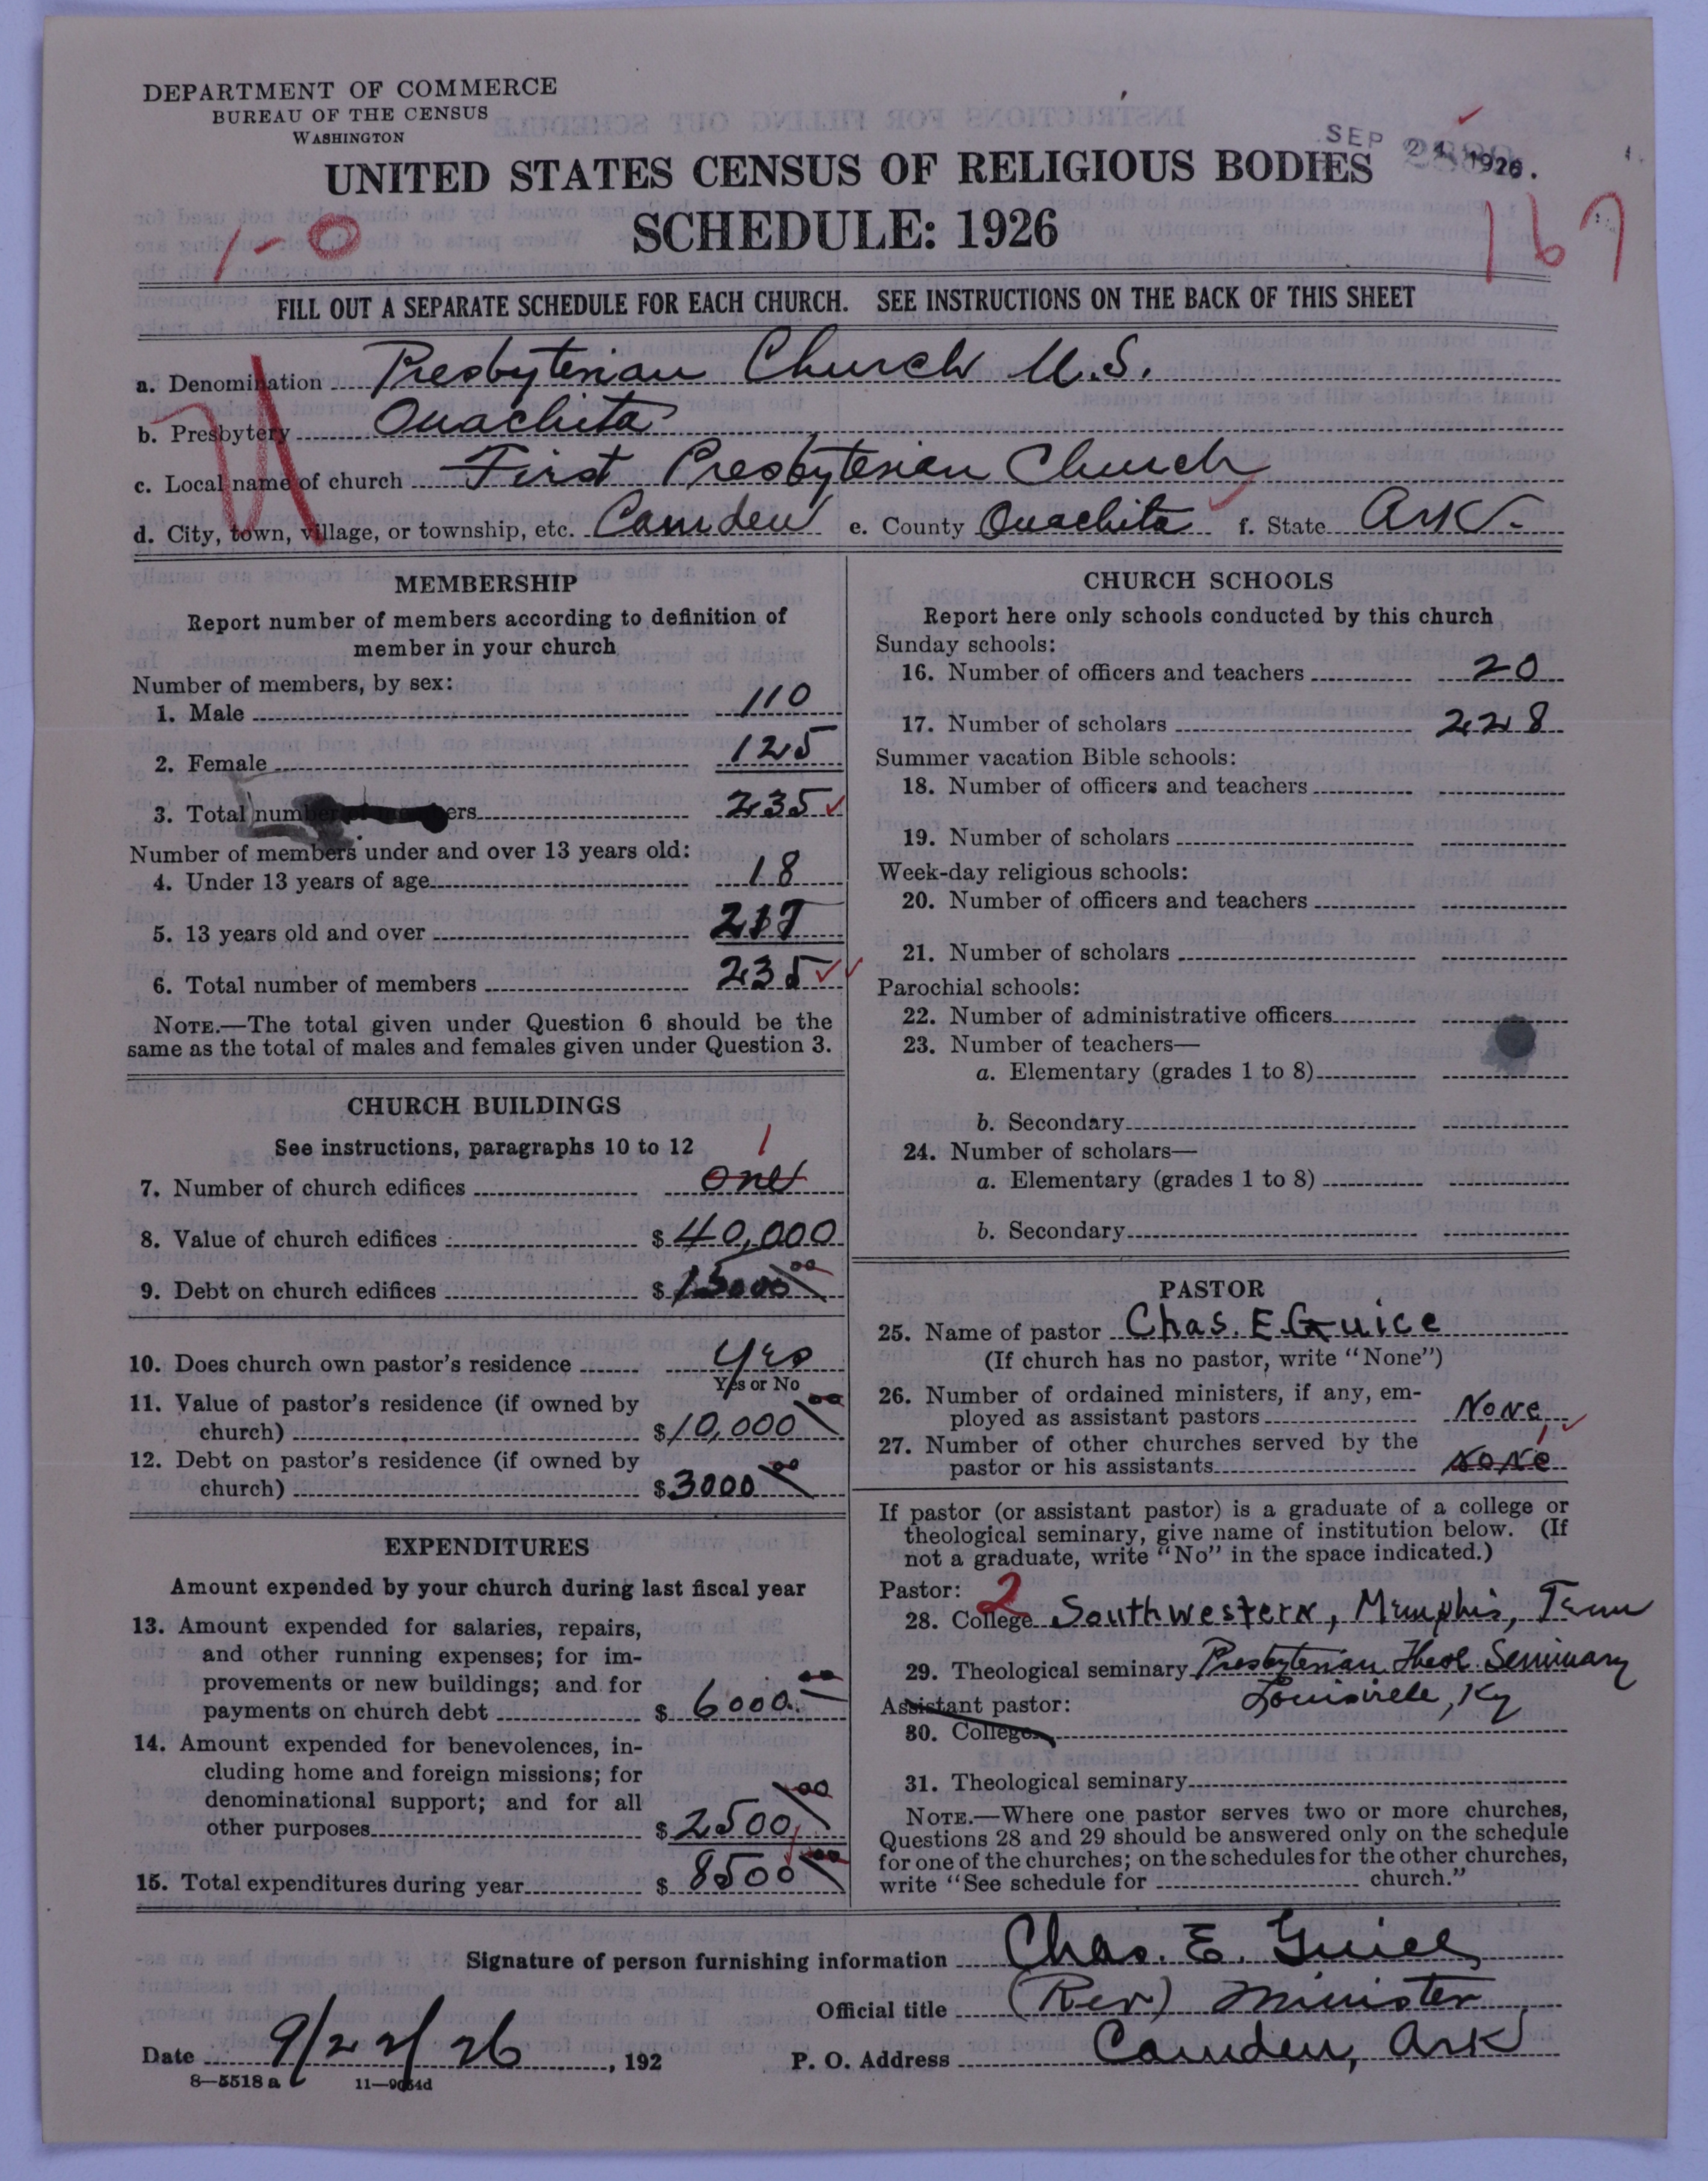 DEPARTMENT OF COMMERCE
BUREAU OF THE CENSUS
WASHINGTON
SEP 24 1926.
UNITED STATES CENSUS OF RELIGIOUS BODIES
SCHEDULE: 1926
1-0
167
FILL OUT A SEPARATE SCHEDULE FOR EACH CHURCH. SEE INSTRUCTIONS ON THE BACK OF THIS SHEET
a. Denomination Presbyterian Church U.S.
b. Presbytery Ouachita
c. Local name of church First Presbyterian Church
d. City, town, village, or township, etc. Camden e. County Ouachita f. State Ark.
MEMBERSHIP
Report number of members according to definition of
member in your church
Number of members, by sex:
1. Male 110
2. Female 125
3. Total number of members 235
Number of members under and over 13 years old:
4. Under 13 years of age 18
5. 13 years old and over 217
6. Total number of members 235
NOTE.—The total given under Question 6 should be the
same as the total of males and females given under Question 3.
CHURCH BUILDINGS
See instructions, paragraphs 10 to 12
1
7. Number of church edifices one
8. Value of church edifices $40,000
9. Debt on church edifices $15000 00
10. Does church own pastor's residence Yes
Yes or No
11. Value of pastor's residence (if owned by
church) $10,000 00
12. Debt on pastor's residence (if owned by
church) $3000 00
EXPENDITURES
Amount expended by your church during last fiscal year
13. Amount expended for salaries, repairs,
and other running expenses; for im-
provements or new buildings; and for
payments on church debt $6000. 00
14. Amount expended for benevolences, in-
cluding home and foreign missions; for
denominational support; and for all
other purposes $2500 00
15. Total expenditures during year $8500 00
CHURCH SCHOOLS
Report here only schools conducted by this church
Sunday schools:
16. Number of officers and teachers 20
17. Number of scholars 228
Summer vacation Bible schools:
18. Number of officers and teachers
19. Number of scholars
Week-day religious schools:
20. Number of officers and teachers
21. Number of scholars
Parochial schools:
22. Number of administrative officers
23. Number of teachers—
a. Elementary (grades 1 to 8)
b. Secondary
24. Number of scholars—
a. Elementary (grades 1 to 8)
b. Secondary
PASTOR
25. Name of pastor Chas. E. Guice
(If church has no pastor, write "None")
26. Number of ordained ministers, if any, em-
ployed as assistant pastors None
27. Number of other churches served by the
pastor or his assistants None 1
If pastor (or assistant pastor) is a graduate of a college or
theological seminary, give name of institution below. (If
not a graduate, write "No" in the space indicated.)
Pastor: 2
28. College Southwestern, Memphis, Tenn
29. Theological seminary Presbyterian Theol Seminary
Louisville, Ky
Assistant pastor:
30. College
31. Theological seminary
NOTE.—Where one pastor serves two or more churches,
Questions 28 and 29 should be answered only on the schedule
for one of the churches; on the schedules for the other churches,
write "See schedule for church."
Signature of person furnishing information Chas. E. Guice
Official title (Rev) Minister
Date 9/22/26, 192 P. O. Address Camden, Ark
8—5518 a 11—9054d